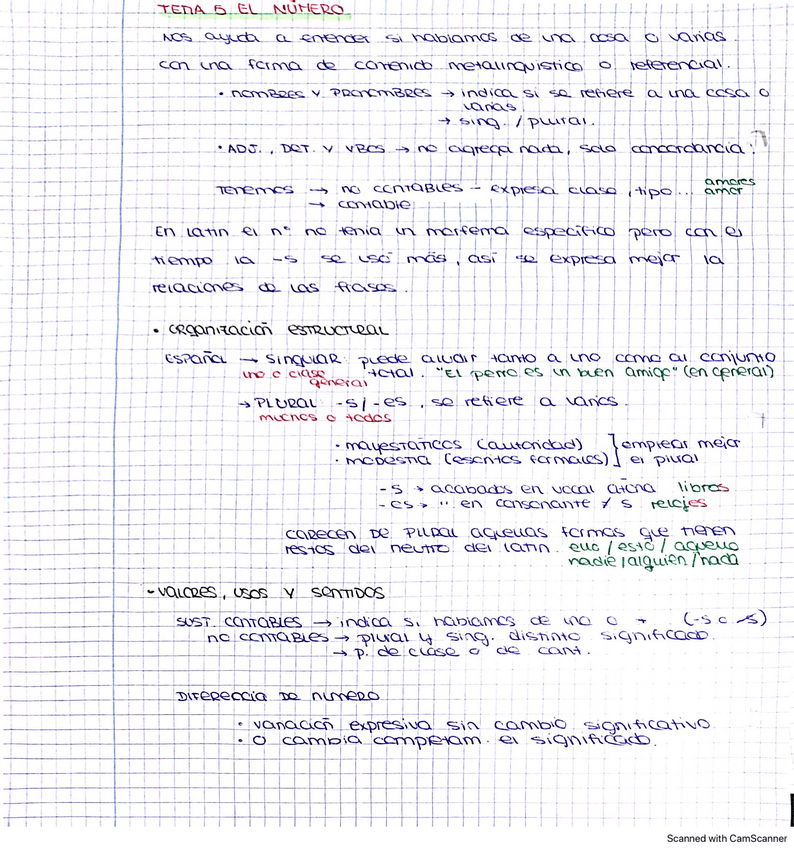 TEMA 5. EL NÚMERO.
NOS ayuda a entender si hablamos de una cosa o varias.
con una forma de contenido metalingüístico o referencial.
• NOMBRES Y PRONOMBRES → indica si se refiere a una cosa o
varias.
→ sing. / plural.
• ADJ., DET. Y VBOS → no agrega nada, solo concordancia.
Tenemos → no CONTABLES – expresa clase, tipo... amores
amor
→ contable
En latín el nº no tenía un morfema específico pero con el
tiempo la -s se usó más, así se expresa mejor la
relaciones de las frases.
• ORGANIZACIÓN ESTRUCTURAL
ESPAÑOL → SINGULAR: puede aludir tanto a uno como al conjunto
total. "El perro es un buen amigo" (en general)
uno o clase
general
→ PLURAL -s/-es, se refiere a varios.
muchos o todos
• MAYESTÁTICOS (autoridad) ] emplear mejor
• MODESTIA (escritos formales) ] el plural
-s → acabados en vocal átona libros
-es → " en consonante / s relojes
CARECEN DE PLURAL aquellas formas que tienen
restos del neutro del latín. ello / esto / aquello
nadie / alguien / nada
- VALORES, USOS Y SENTIDOS
SUST. CONTABLES → indica si hablamos de uno o + (-s o -s)
no CONTABLES → plural y sing. distinto significado.
→ p. de clase o de cant.
DIFERENCIA DE NÚMERO
• variación expresiva sin cambio significativo
• o cambia completam. el significado.
Scanned with CamScanner